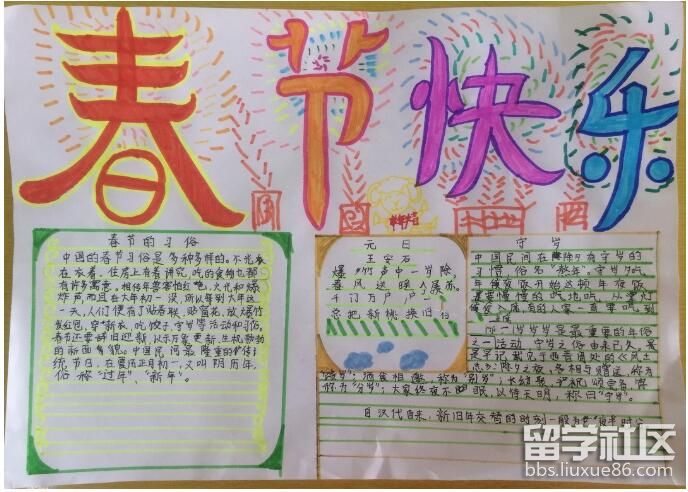 春节快乐
春节的习俗
中国的春节习俗是多种多样的。不光衣
在衣着、住房上有着讲究,吃的食物也都
有许多寓意。相传年兽害怕红色,火光和爆
炸声,而且在大年初一没,所以每到大年这
一天,人们便有了贴春联,贴窗花,放爆竹
发红包,穿新衣,吃饺子,守岁等活动和习俗,
春节还要辞旧迎新,以示万象更新、生机勃勃
的新面貌。中国民间最隆重的传
统节日,在夏历正月初一,又叫阴历年,
俗称"过年"、"新年"。
元日
王安石
爆竹声中一岁除,
春风送暖入屠苏。
千门万户
总把新桃换旧符
守岁
中国民间在除夕有守岁的
习惯,俗名"熬年"。守岁
年夜饭开始这顿年夜饭
要慢慢的吃
所有的人家一直要吃到
守岁是最重要的年俗
之一活动 守岁之俗由来已久。最
早记载见于西晋周处的《风土
志》:除夕之夜,各相与赠送,称为
岁";酒食相邀,称为"别岁";长幼聚
称为"分岁";大家终夜不眠,以待天明,称曰"守岁"。
自汉代自来,新旧年交替的时刻一般为
留学社区
bbs.liuxue86.com